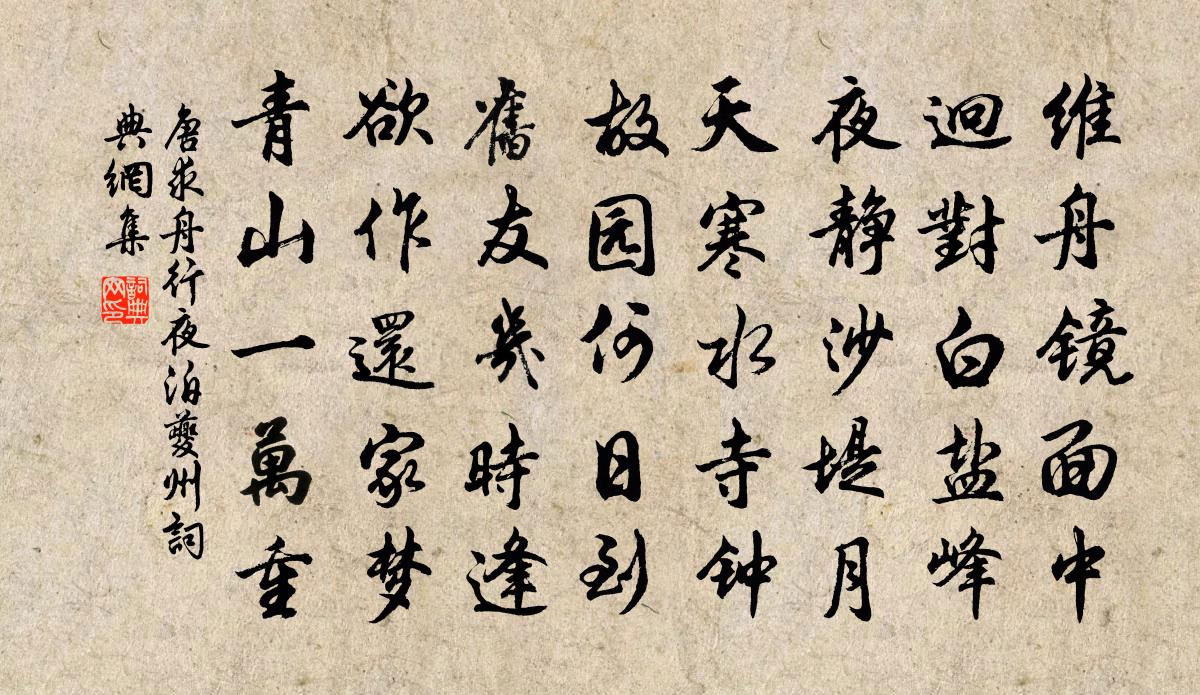 维舟镜面中
迥對白盐峰
夜静沙堤月
天寒水寺钟
故园何日到
舊友幾時逢
欲作還家梦
青山一萬重
唐求舟行夜泊夔州詞
典網集
詞典
网印